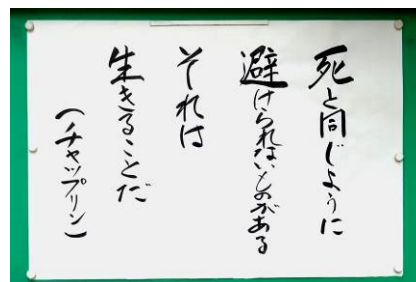 死と同じように
避けられないものがある
それは
生きることだ
(チャップリン)